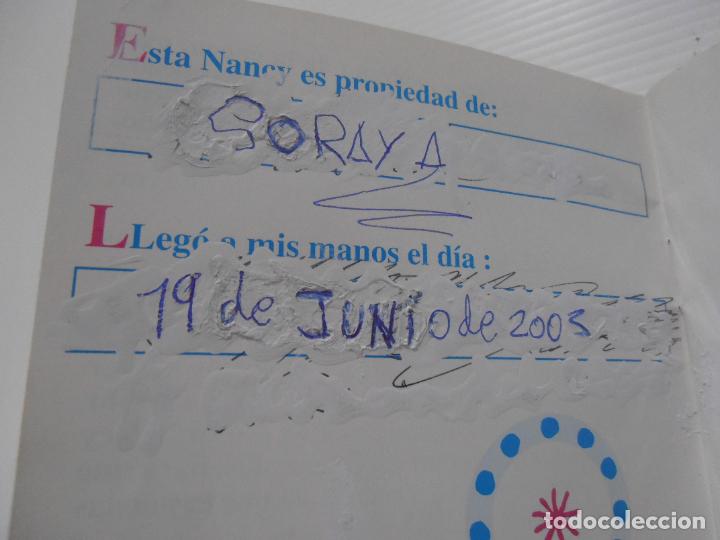 Esta Nancy es propiedad de:
SORAYA
LLegó a mis manos el día :
19 de JUNIO de 2003
todocoleccion